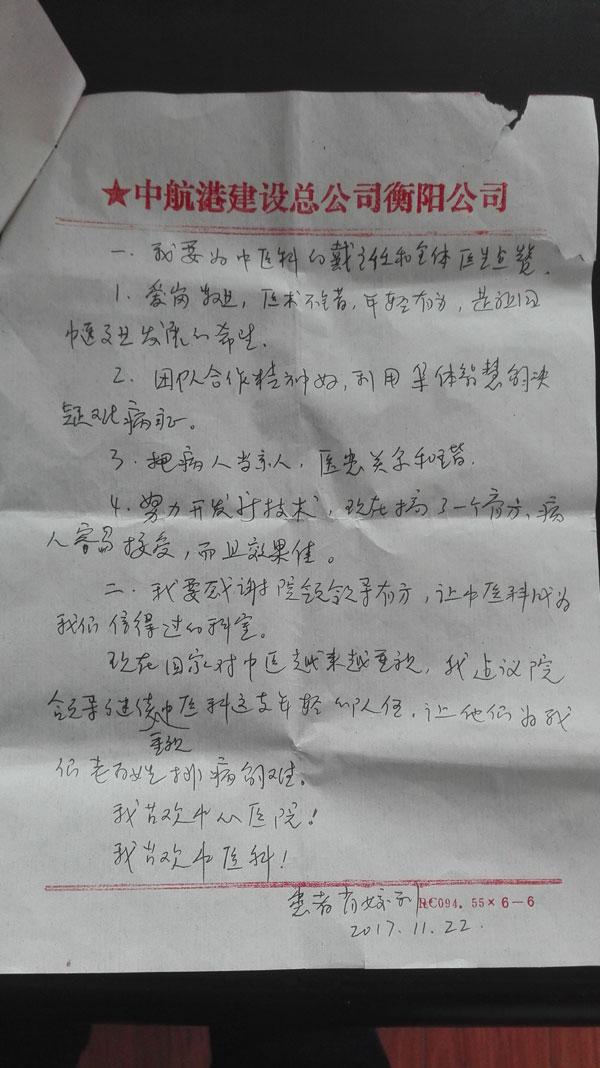 ★中航港建设总公司衡阳公司
一.我要为中医科的戴主任和全体医生点赞.
1.爱岗敬业,医术不错,年轻有为,是祖国
中医事业发展的希望.
2.团队合作精神好,利用集体智慧解决
疑难病症。
3.把病人当亲人,医患关系和谐.
4.努力开发新技术,现在搞了一个膏方,病
人容易接受,而且效果佳。
二.我要感谢院领领导有方,让中医科成为
我们信得过的科室。
现在国家对中医越来越重视,我建议院
领导继续中医科这支年轻的队伍,让他们为我
重视
们老百姓排病解难。
我喜欢中心医院!
我喜欢中医科!
患者肖
RC094.55×6-6
2017.11.22.